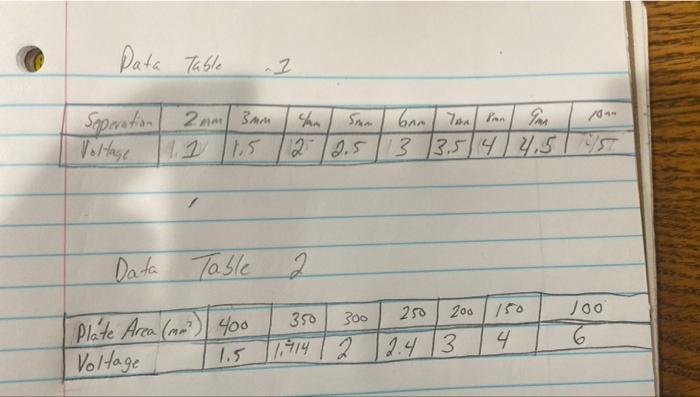 Data Table -1
Seperation 2mm 3mm 4mm 5mm 6mm 7mm 8mm 9mm 10mm
Voltage 1 1.5 2 2.5 3 3.5 4 4.5 5
Data Table 2
Plate Area (mm²) 400 350 300 250 200 150 100
Voltage 1.5 1.714 2 2.4 3 4 6